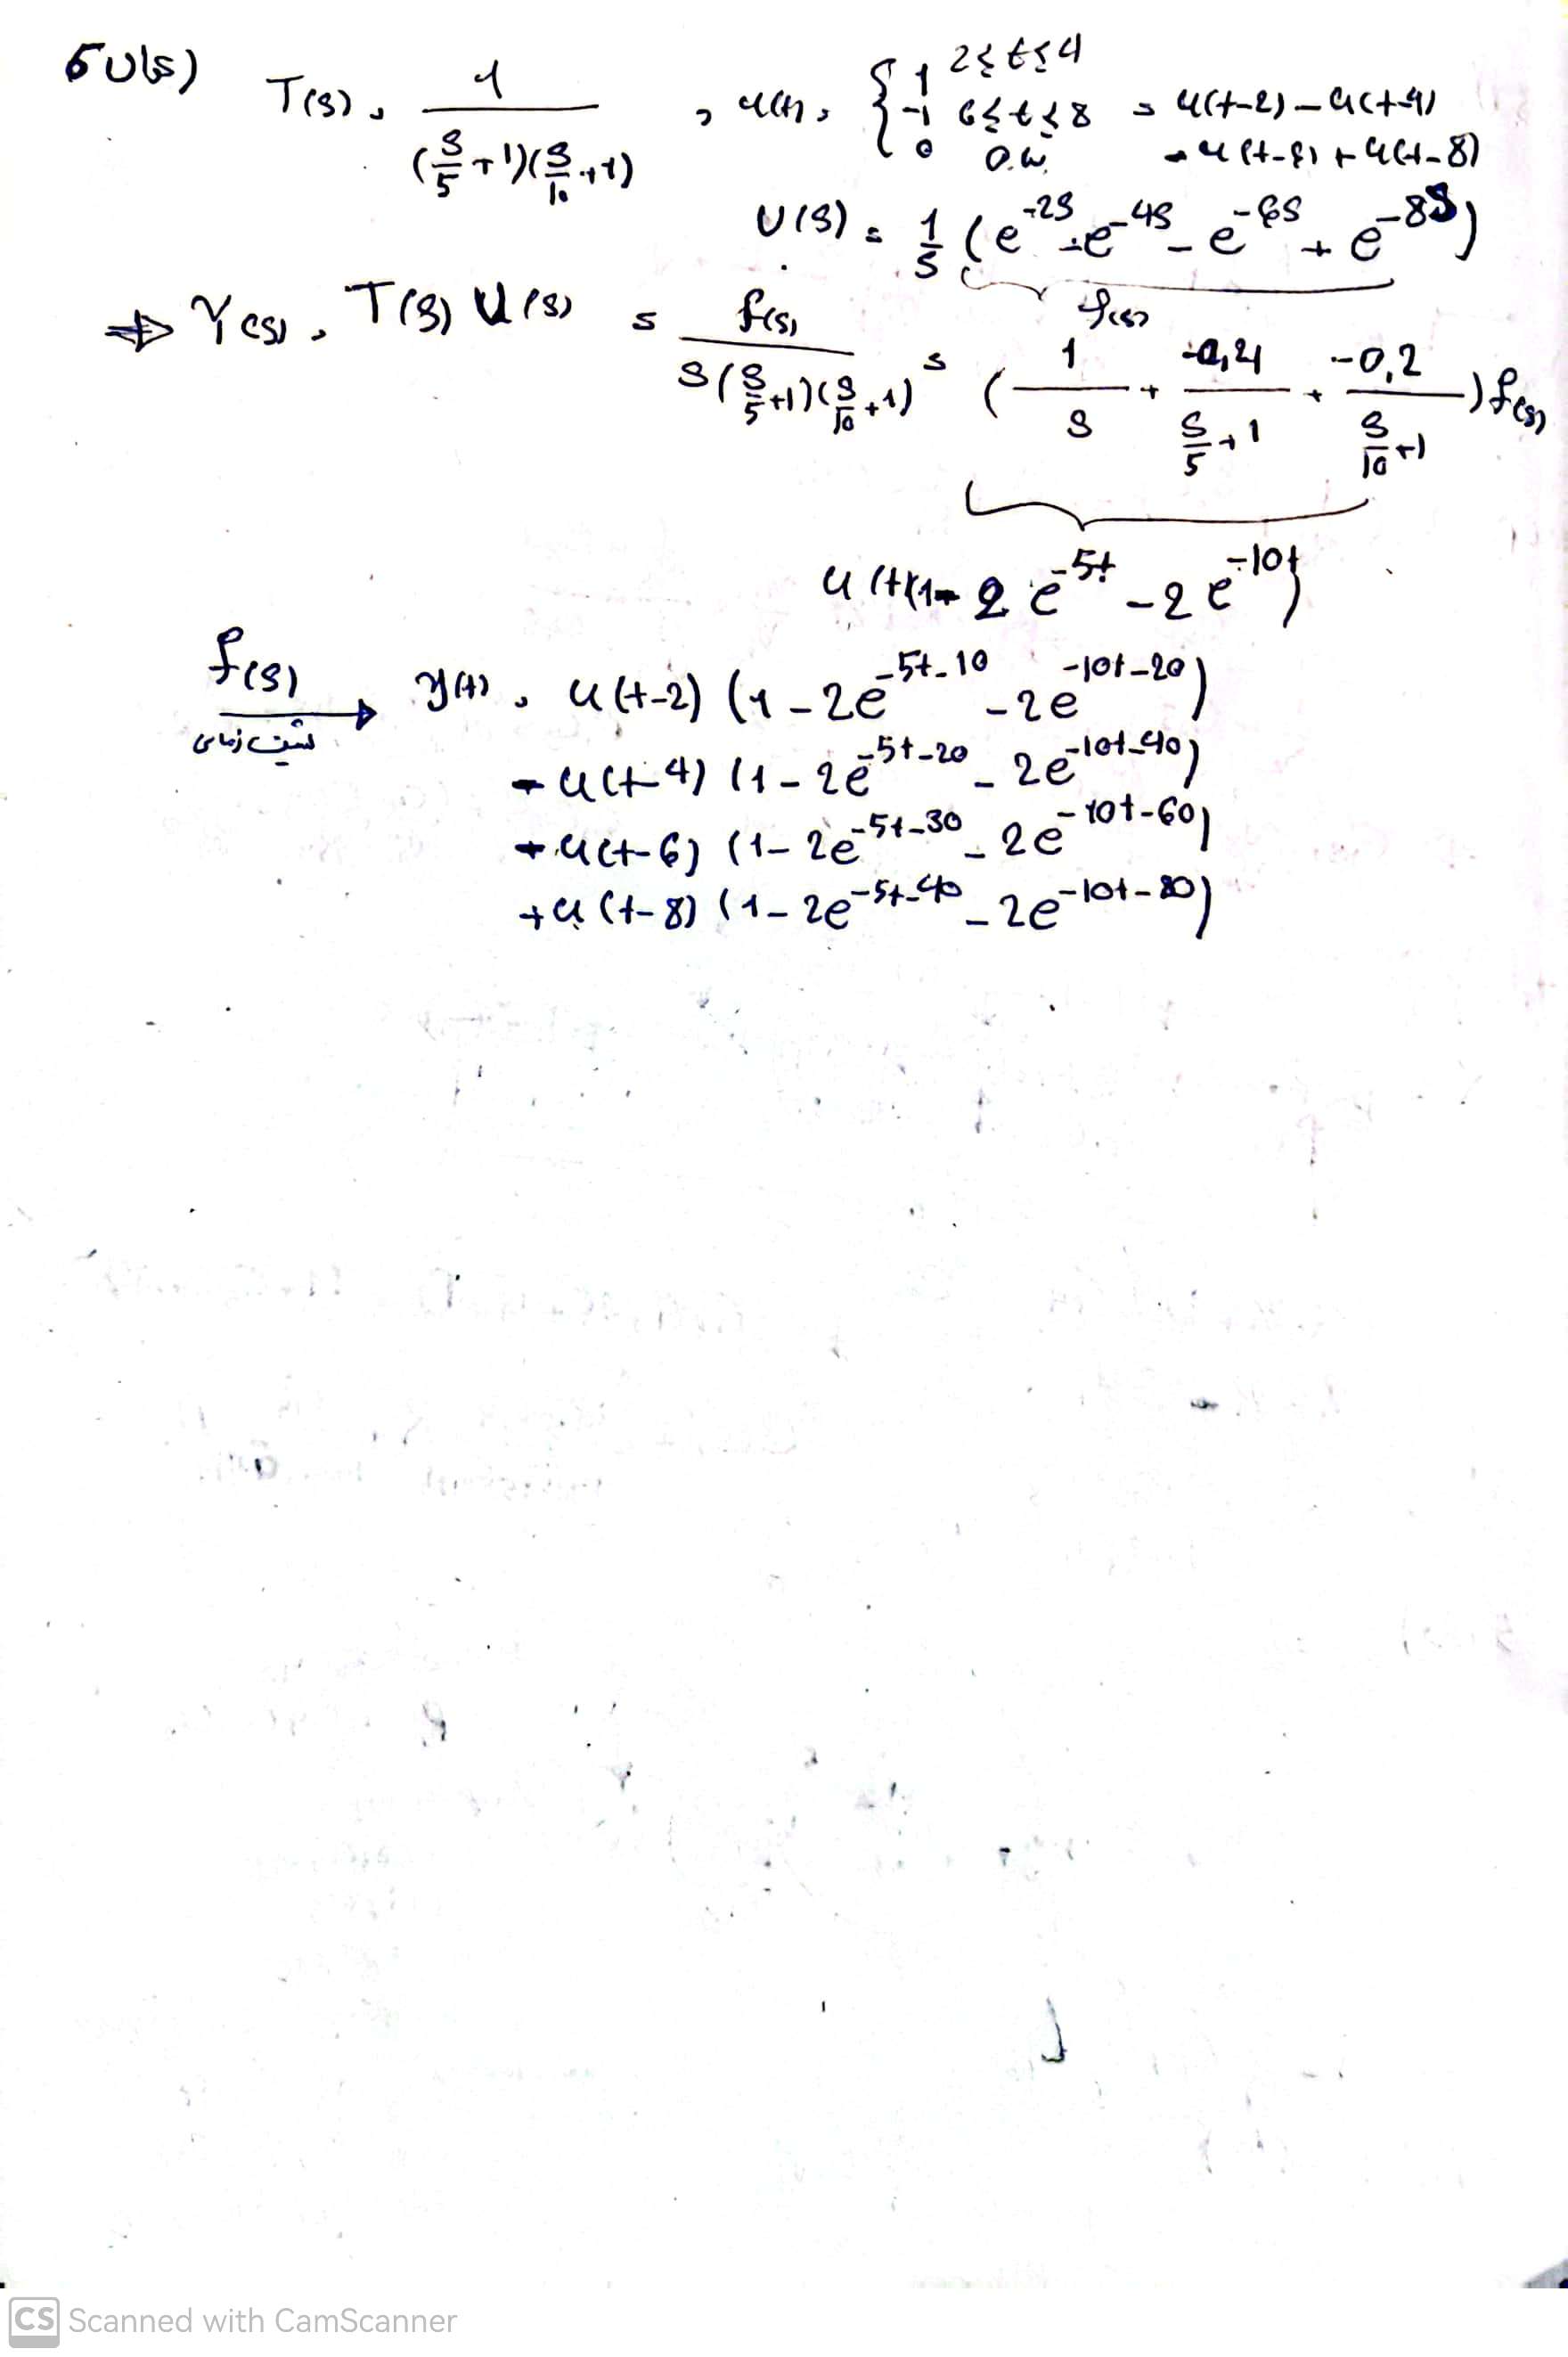 T(s) = 1 / ((s/5 + 1)(s/10 + 1)) , u(t) = { 1 2≤t≤4 ; -1 6≤t≤8 ; 0 O.W. = u(t-2) - u(t-4)
- u(t-6) + u(t-8)
U(s) = 1/s (e^-2s - e^-4s - e^-6s + e^-8s)
f(s)
⇒ Y(s) = T(s) U(s) = f(s) / (s(s/5 + 1)(s/10 + 1)) = (1/s + / (s/5 + 1) + -0,2 / (s/10 + 1)) f(s)
u(t)(1 - 2e^-5t - 2e^-10t)
f(s) شیفت زمانی → y(t) = u(t-2) (1 - 2e^-5t-10 - 2e^-10t-20)
- u(t-4) (1 - 2e^-5t-20 - 2e^-10t-40)
u(t-6) (1 - 2e^-5t-30 - 2e^-10t-60)
+ u(t-8) (1 - 2e^-5t-40 - 2e^-10t-80)
CS Scanned with CamScanner